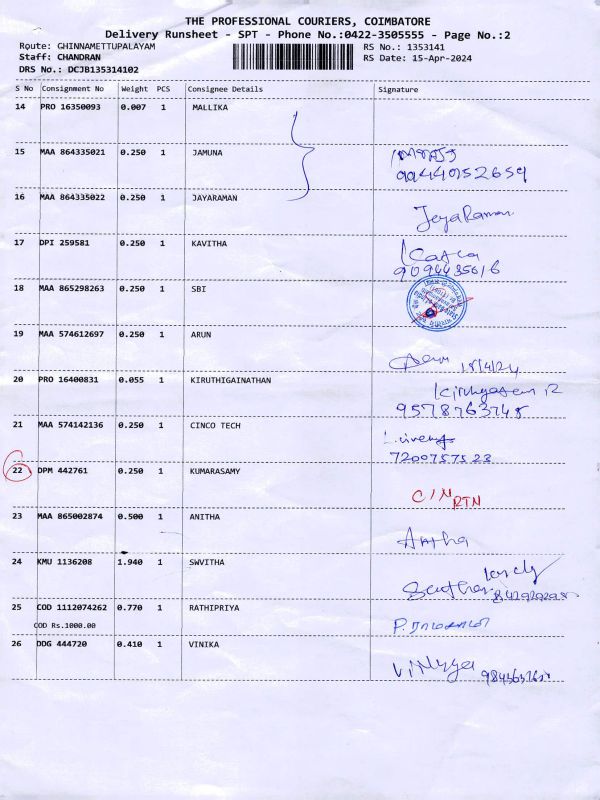 THE PROFESSIONAL COURIERS, COIMBATORE
Delivery Runsheet - SPT - Phone No.:0422-3505555 - Page No.:2
Route: CHINNAMETTUPALAYAM RS No.: 1353141
Staff: CHANDRAN RS Date: 15-Apr-2024
DRS No.: DCJB135314102
S No Consignment No Weight PCS Consignee Details Signature
14 PRO 16350093 0.007 1 MALLIKA
15 MAA 864335021 0.250 1 JAMUNA
16 MAA 864335022 0.250 1 JAYARAMAN
JeyaRaman
17 DPI 259581 0.250 1 KAVITHA
9094435616
18 MAA 865298263 0.250 1 SBI
19 MAA 574612697 0.250 1 ARUN
15/4/24
20 PRO 16400831 0.055 1 KIRUTHIGAINATHAN
9578763745
21 MAA 574142136 0.250 1 CINCO TECH
7200757523
22 DPM 442761 0.250 1 KUMARASAMY
C/N RTN
23 MAA 865002874 0.500 1 ANITHA
24 KMU 1136208 1.940 1 SWVITHA
25 COD 1112074262 0.770 1 RATHIPRIYA
COD Rs.1000.00
26 DDG 444720 0.410 1 VINIKA